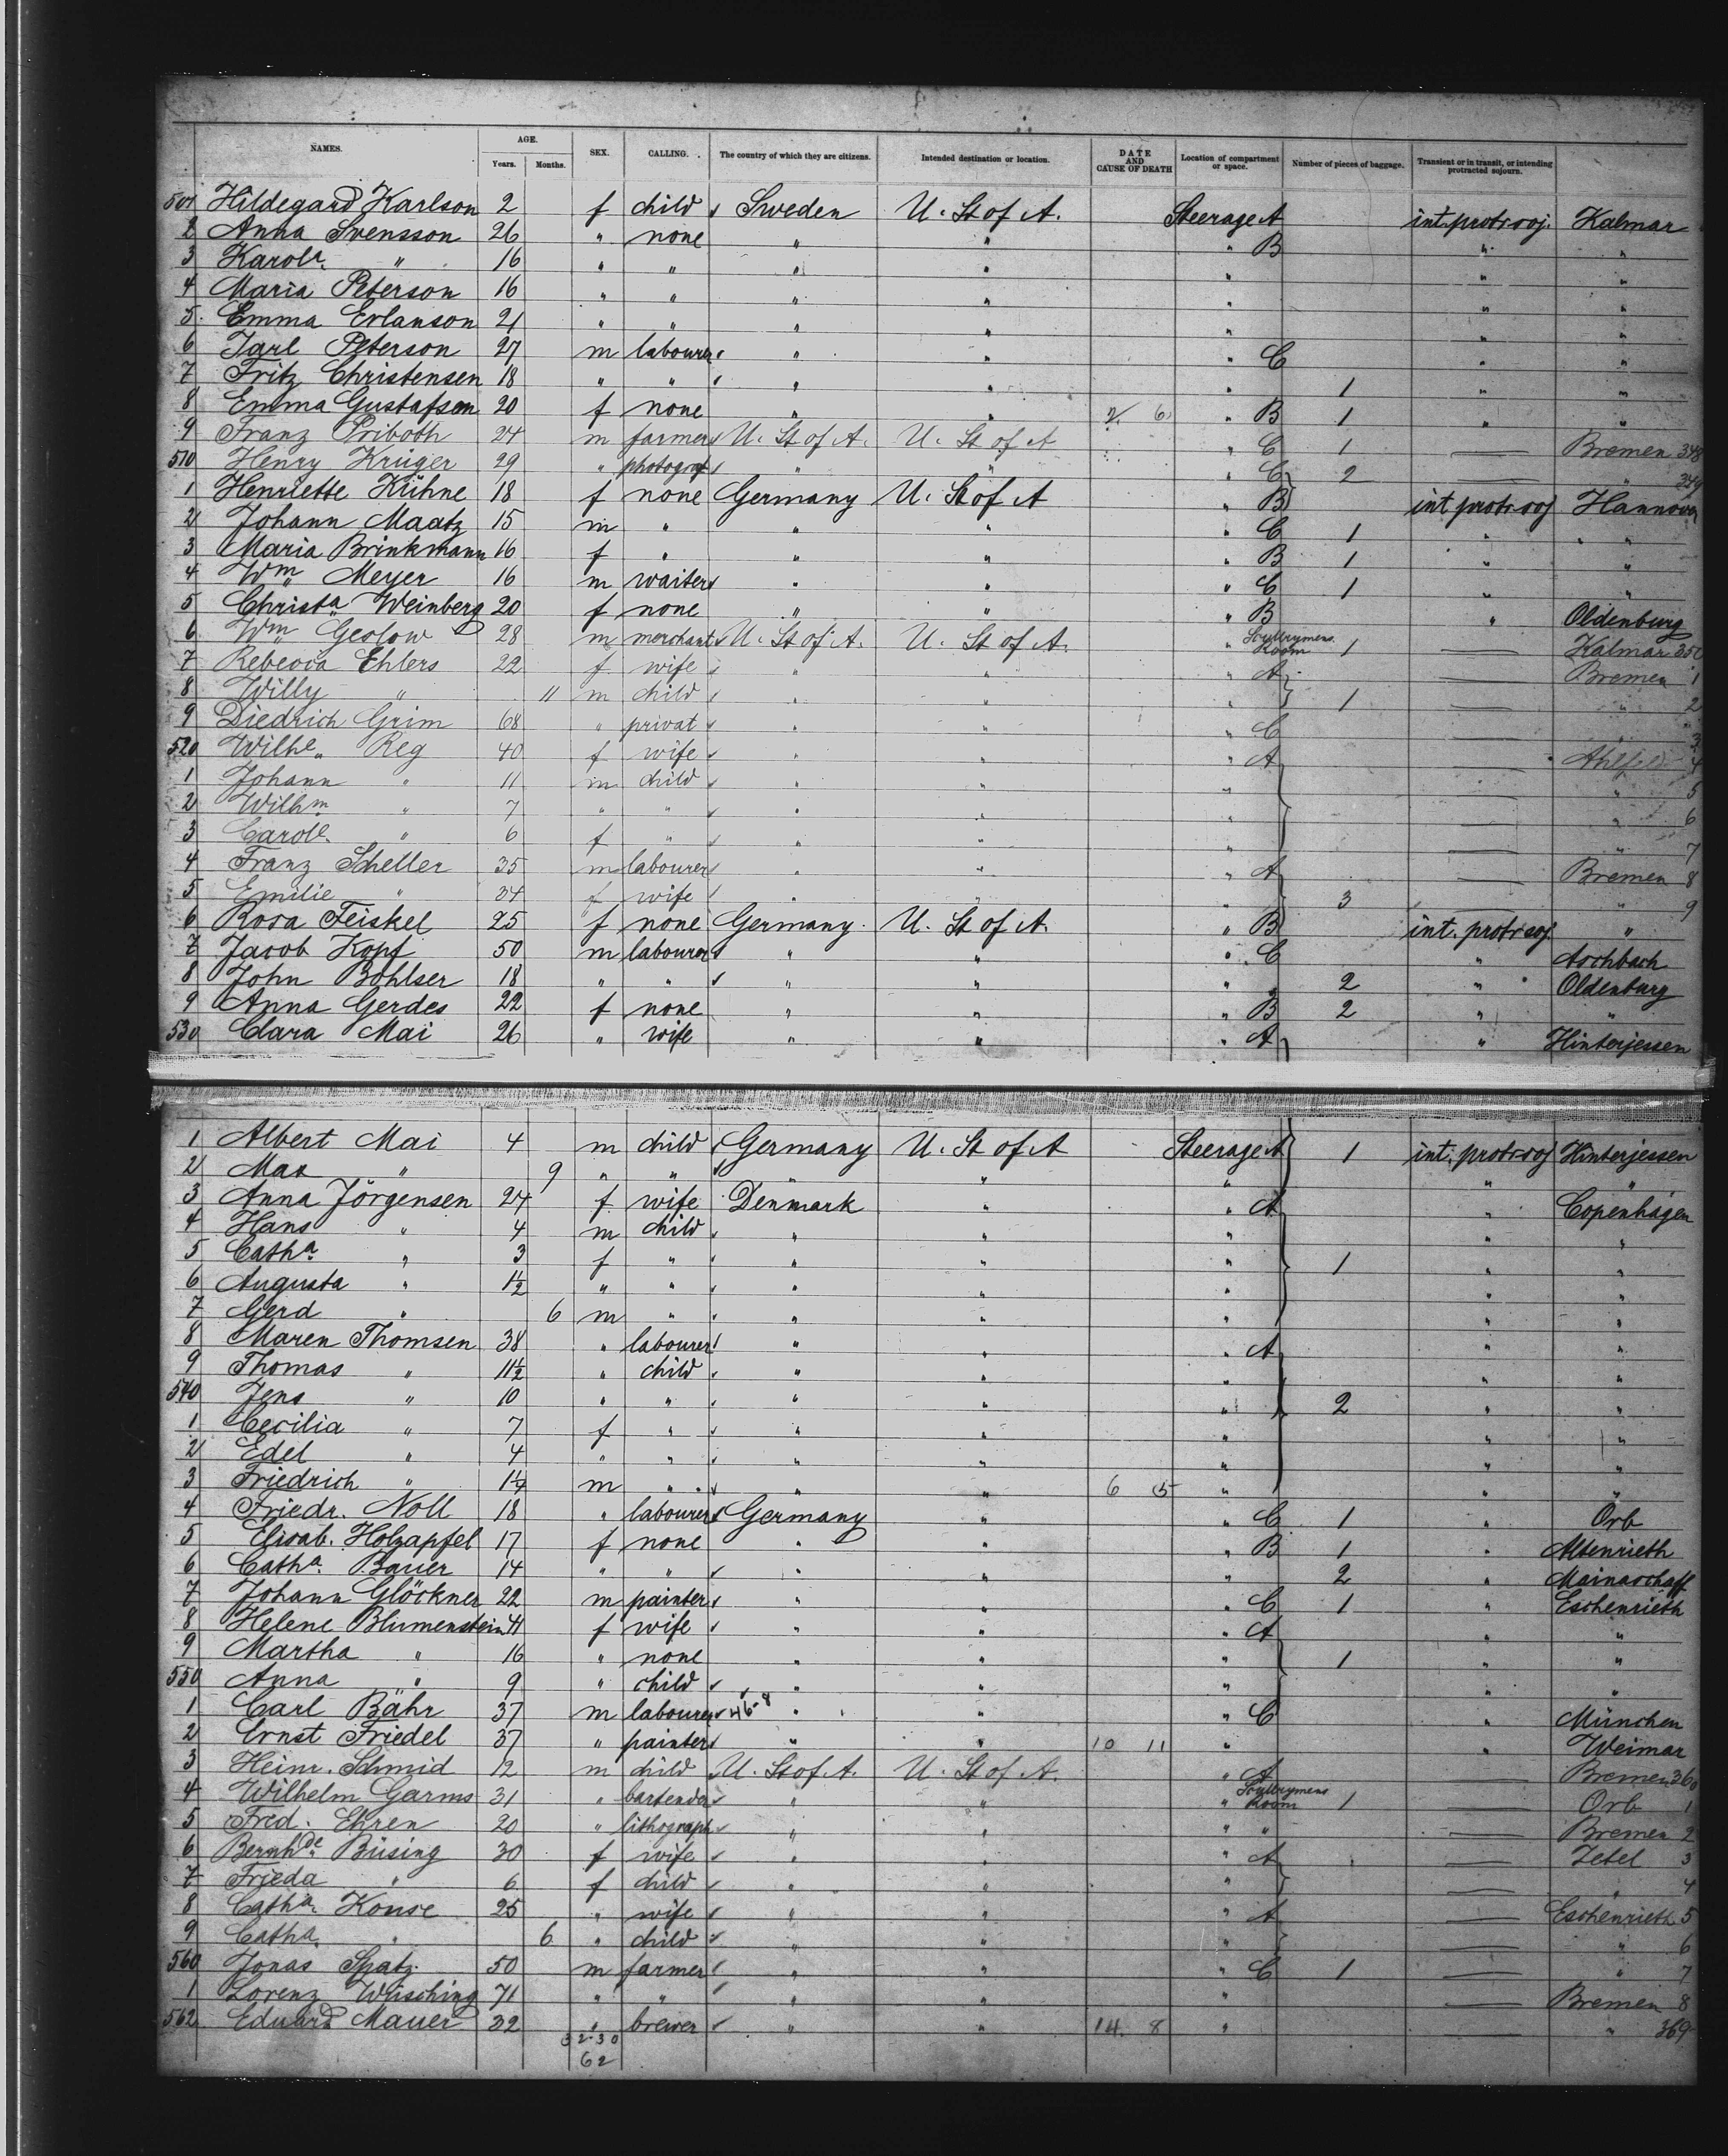 NAMES. AGE. Years. Months. SEX. CALLING. The country of which they are citizens. Intended destination or location. DATE AND CAUSE OF DEATH Location of compartment or space. Number of pieces of baggage. Transient or in transit, or intending protracted sojourn.
501 Hildegard Karlson 2 f child Sweden U. St of A. Steerage A int. protr. soj. Kalmar
2 Anna Svensson 26 " none " " " B " "
3 Karola " 16 " " " " " " "
4 Maria Peterson 16 " " " " " " "
5 Emma Erlanson 21 " " " " " " "
6 Jarl Peterson 27 m labourer " " " C " "
7 Fritz Christensen 18 " " " " " 1 " "
8 Emma Gustafson 20 f none " " 2 6 " B 1 " "
9 Franz Priboth 24 m farmer U. St of A. U. St of A " C 1 — Bremen 348
510 Henry Krüger 29 " photogr " " " C 2 — " 349
1 Henriette Kühne 18 f none Germany U. St of A " B int protr. soj Hannover
2 Johann Maatz 15 m " " " " C 1 " "
3 Maria Brinkmann 16 f " " " " B 1 " "
4 Wm Meyer 16 m waiter " " " C 1 " "
5 Christa Weinberg 20 f none " " " B " Oldenburg
6 Wm Geslow 28 m merchant U. St of A. U. St of A. " Scullrymens Room 1 — Kalmar 350
7 Rebecca Ehlers 22 f wife " " " A — Bremen 1
8 Willy " 11 m child " " " 1 — " 2
9 Diedrich Grim 68 " privat " " " C — " 3
520 Wilhe Reg 40 f wife " " " A — Ahlfeld 4
1 Johann " 11 m child " " " — " 5
2 Wilhm " 7 " " " " " — " 6
3 Carole " 6 f " " " " — " 7
4 Franz Scheller 35 m labourer " " " A — Bremen 8
5 Emilie " 34 f wife " " " 3 — " 9
6 Rosa Feiskel 25 f none Germany. U. St of A. " B int. protr. soj. "
7 Jacob Kopf 50 m labourer " " " C " Aschbach
8 John Bohlser 18 " " " " " 2 " Oldenburg
9 Anna Gerdes 22 f none " " " B 2 " "
530 Clara Mai 26 " wife " " " A " Hinterjessen
1 Albert Mai 4 m child Germany U. St of A Steerage A 1 int. protr. soj Hinterjessen
2 Max " 9 " " " " " " "
3 Anna Jörgensen 24 f wife Denmark " " A " Copenhagen
4 Hans " 4 m child " " " " "
5 Catha " 3 f " " " " 1 " "
6 Augusta " 1½ " " " " " " "
7 Gerd " 6 m " " " " " "
8 Maren Thomsen 38 " labourer " " " A " "
9 Thomas " 11½ " child " " " " "
540 Jens " 10 " " " " " 2 " "
1 Cecilia " 7 f " " " " " "
2 Edel " 4 " " " " " " "
3 Friedrich " 1¼ m " " " 6 5 " " "
4 Friedr. Noll 18 " labourer Germany " " C 1 " Orb
5 Elisab. Holzapfel 17 f none " " " B 1 " Altenrieth
6 Catha Bauer 14 " " " " " 2 " Mainaschaff
7 Johann Glöckner 22 m painter " " " C 1 " Eschenrieth
8 Helene Blumenstein 41 f wife " " " A " "
9 Martha " 16 " none " " " 1 " "
550 Anna " 9 " child " " " " "
1 Carl Bähr 37 m labourer 46-8 " " " C " München
2 Ernst Friedel 37 " painter " " 10 11 " " Weimar
3 Heinr. Schmid 12 m child U. St of A. U. St of A. " A — Bremen 360
4 Wilhelm Garms 31 " bartender " " " Scullrymens Room 1 — Orb 1
5 Fred. Ehren 20 " lithograph " " " " — Bremen 2
6 Bernhde Büsing 30 f wife " " " A — Zetel 3
7 Frieda " 6 f child " " " — " 4
8 Catha Konse 25 " wife " " " A — Eschenrieth 5
9 Catha " 6 " child " " " — " 6
560 Jonas Spatz 50 m farmer " " " C 1 — " 7
1 Lorenz Wüsching 71 " " " " " — Bremen 8
562 Eduard Mauer 32 " brewer " " 14. 8 " — " 369
32-30
62